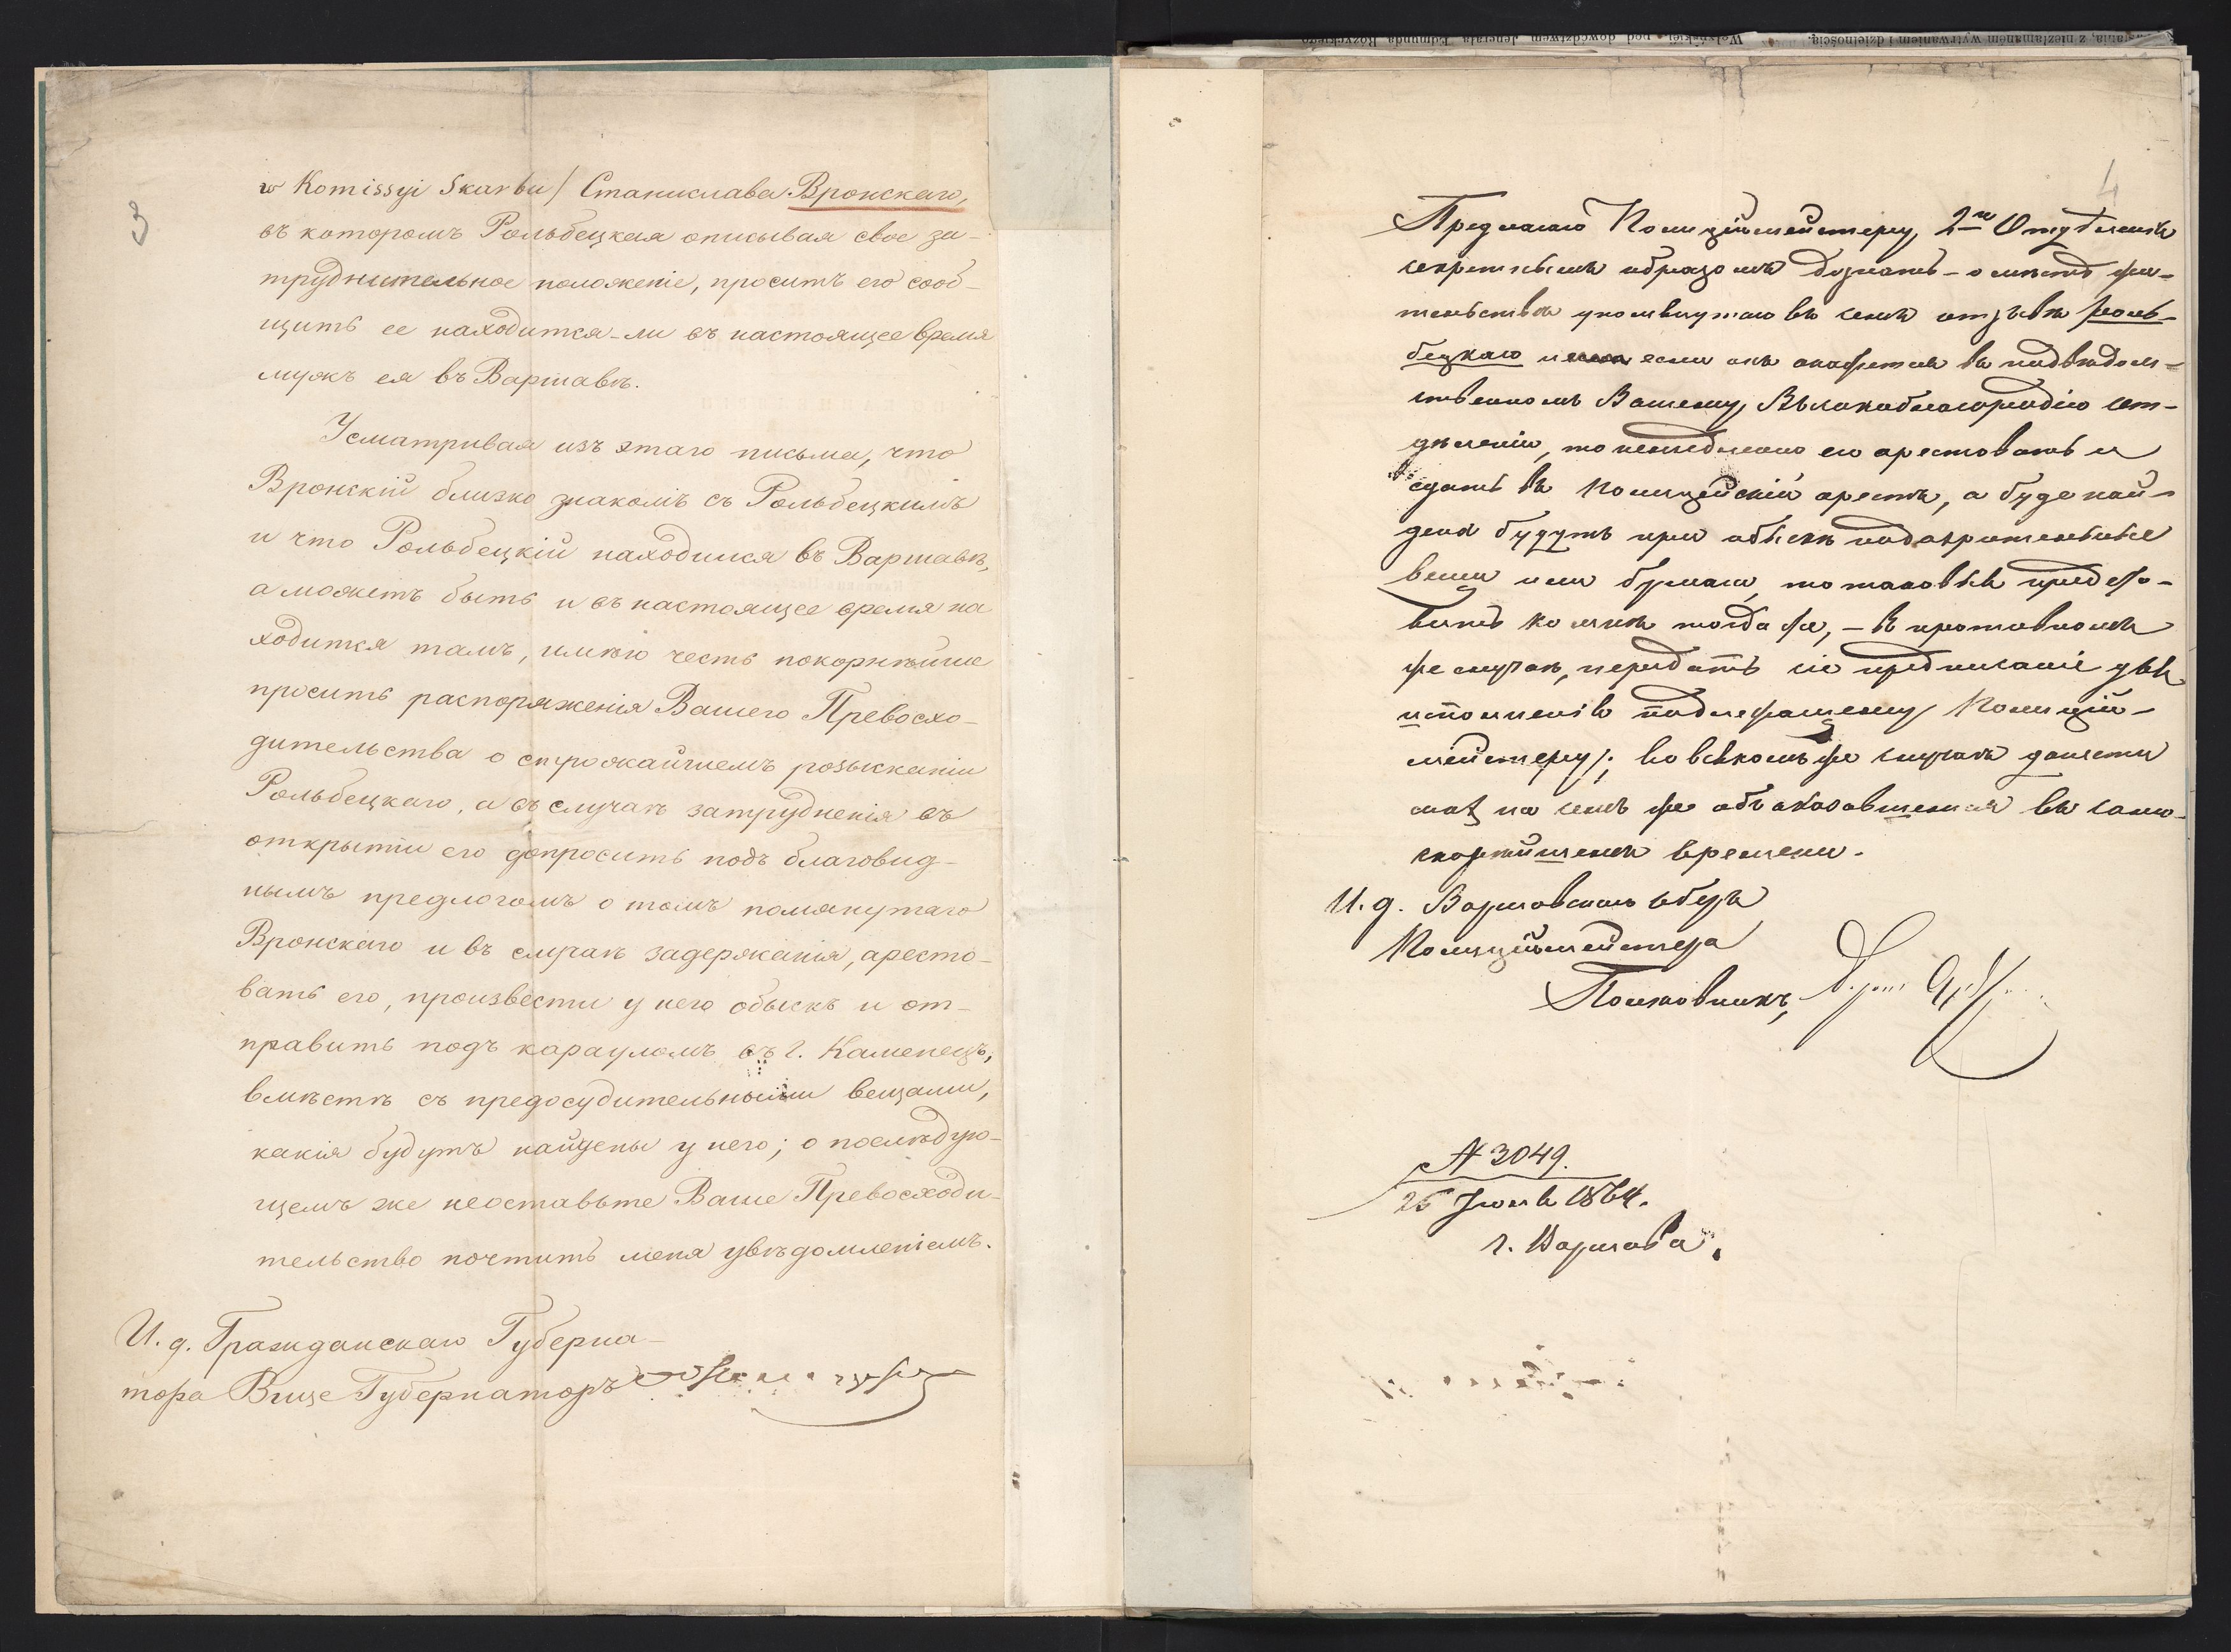 3
w Komissyi Skarbu/ Станислава Вронскаго,
въ которомъ Рольбецкая описывая свое за-
труднительное положеніе, проситъ его сооб-
щить ее находится-ли въ настоящее время
мужъ ея въ Варшавѣ.
Усматривая изъ этаго письма, что
Вронскій близко знакомъ съ Рольбецкимъ
и что Рольбецкій находился въ Варшавѣ,
а можетъ быть и въ настоящее время на
ходится тамъ, имѣю честь покорнѣйше
просить распоряженія Вашего Превосхо-
дительства о строжайшемъ розысканіи
Рольбецкаго, а въ случаѣ затрудненія въ
открытіи его допросить подъ благовид-
нымъ предлогомъ о томъ помянутаго
Вронскаго и въ случаѣ задержанія, аресто-
вать его, произвести у него обыскъ и от-
править подъ карауломъ въ г. Каменецъ,
вмѣстѣ съ предосудительными вещами,
какія будутъ найдены у него; о послѣдую-
щемъ же неоставьте Ваше Превосходи-
тельство почтить меня увѣдомленіемъ.
И. д. Гражданскаго Губерна-
тора Вице Губернаторъ
4
Предлагаю Полиціймейстеру 2го Отдѣленія
секретнымъ образомъ дознать о мѣстѣ жи-
тельства упомянутаго въ семъ отзывѣ Роль-
бецкаго и если онъ окажется въ подвѣдом-
ственномъ Вашему Высокоблагородію от-
дѣленіи, то немедленно его арестовать и
сдать въ Полицейскій арестъ, а буде най-
дены будутъ при обыскѣ подозрительные
вещи или бумаги, то таковыя предъя-
вить ко мнѣ тогда же, – въ противномъ
же случаѣ, передать сіе предписаніе для
исполненія подлежащему Полицій-
мейстеру; во всякомъ же случаѣ донести
мнѣ на семъ же объ оказавшемся въ само-
скорѣйшемъ времени.
И. д. Варшавскаго Оберъ
Полиціймейстера
Полковникъ,
N 3049.
25 Іюня 1864.
г. Варшава.